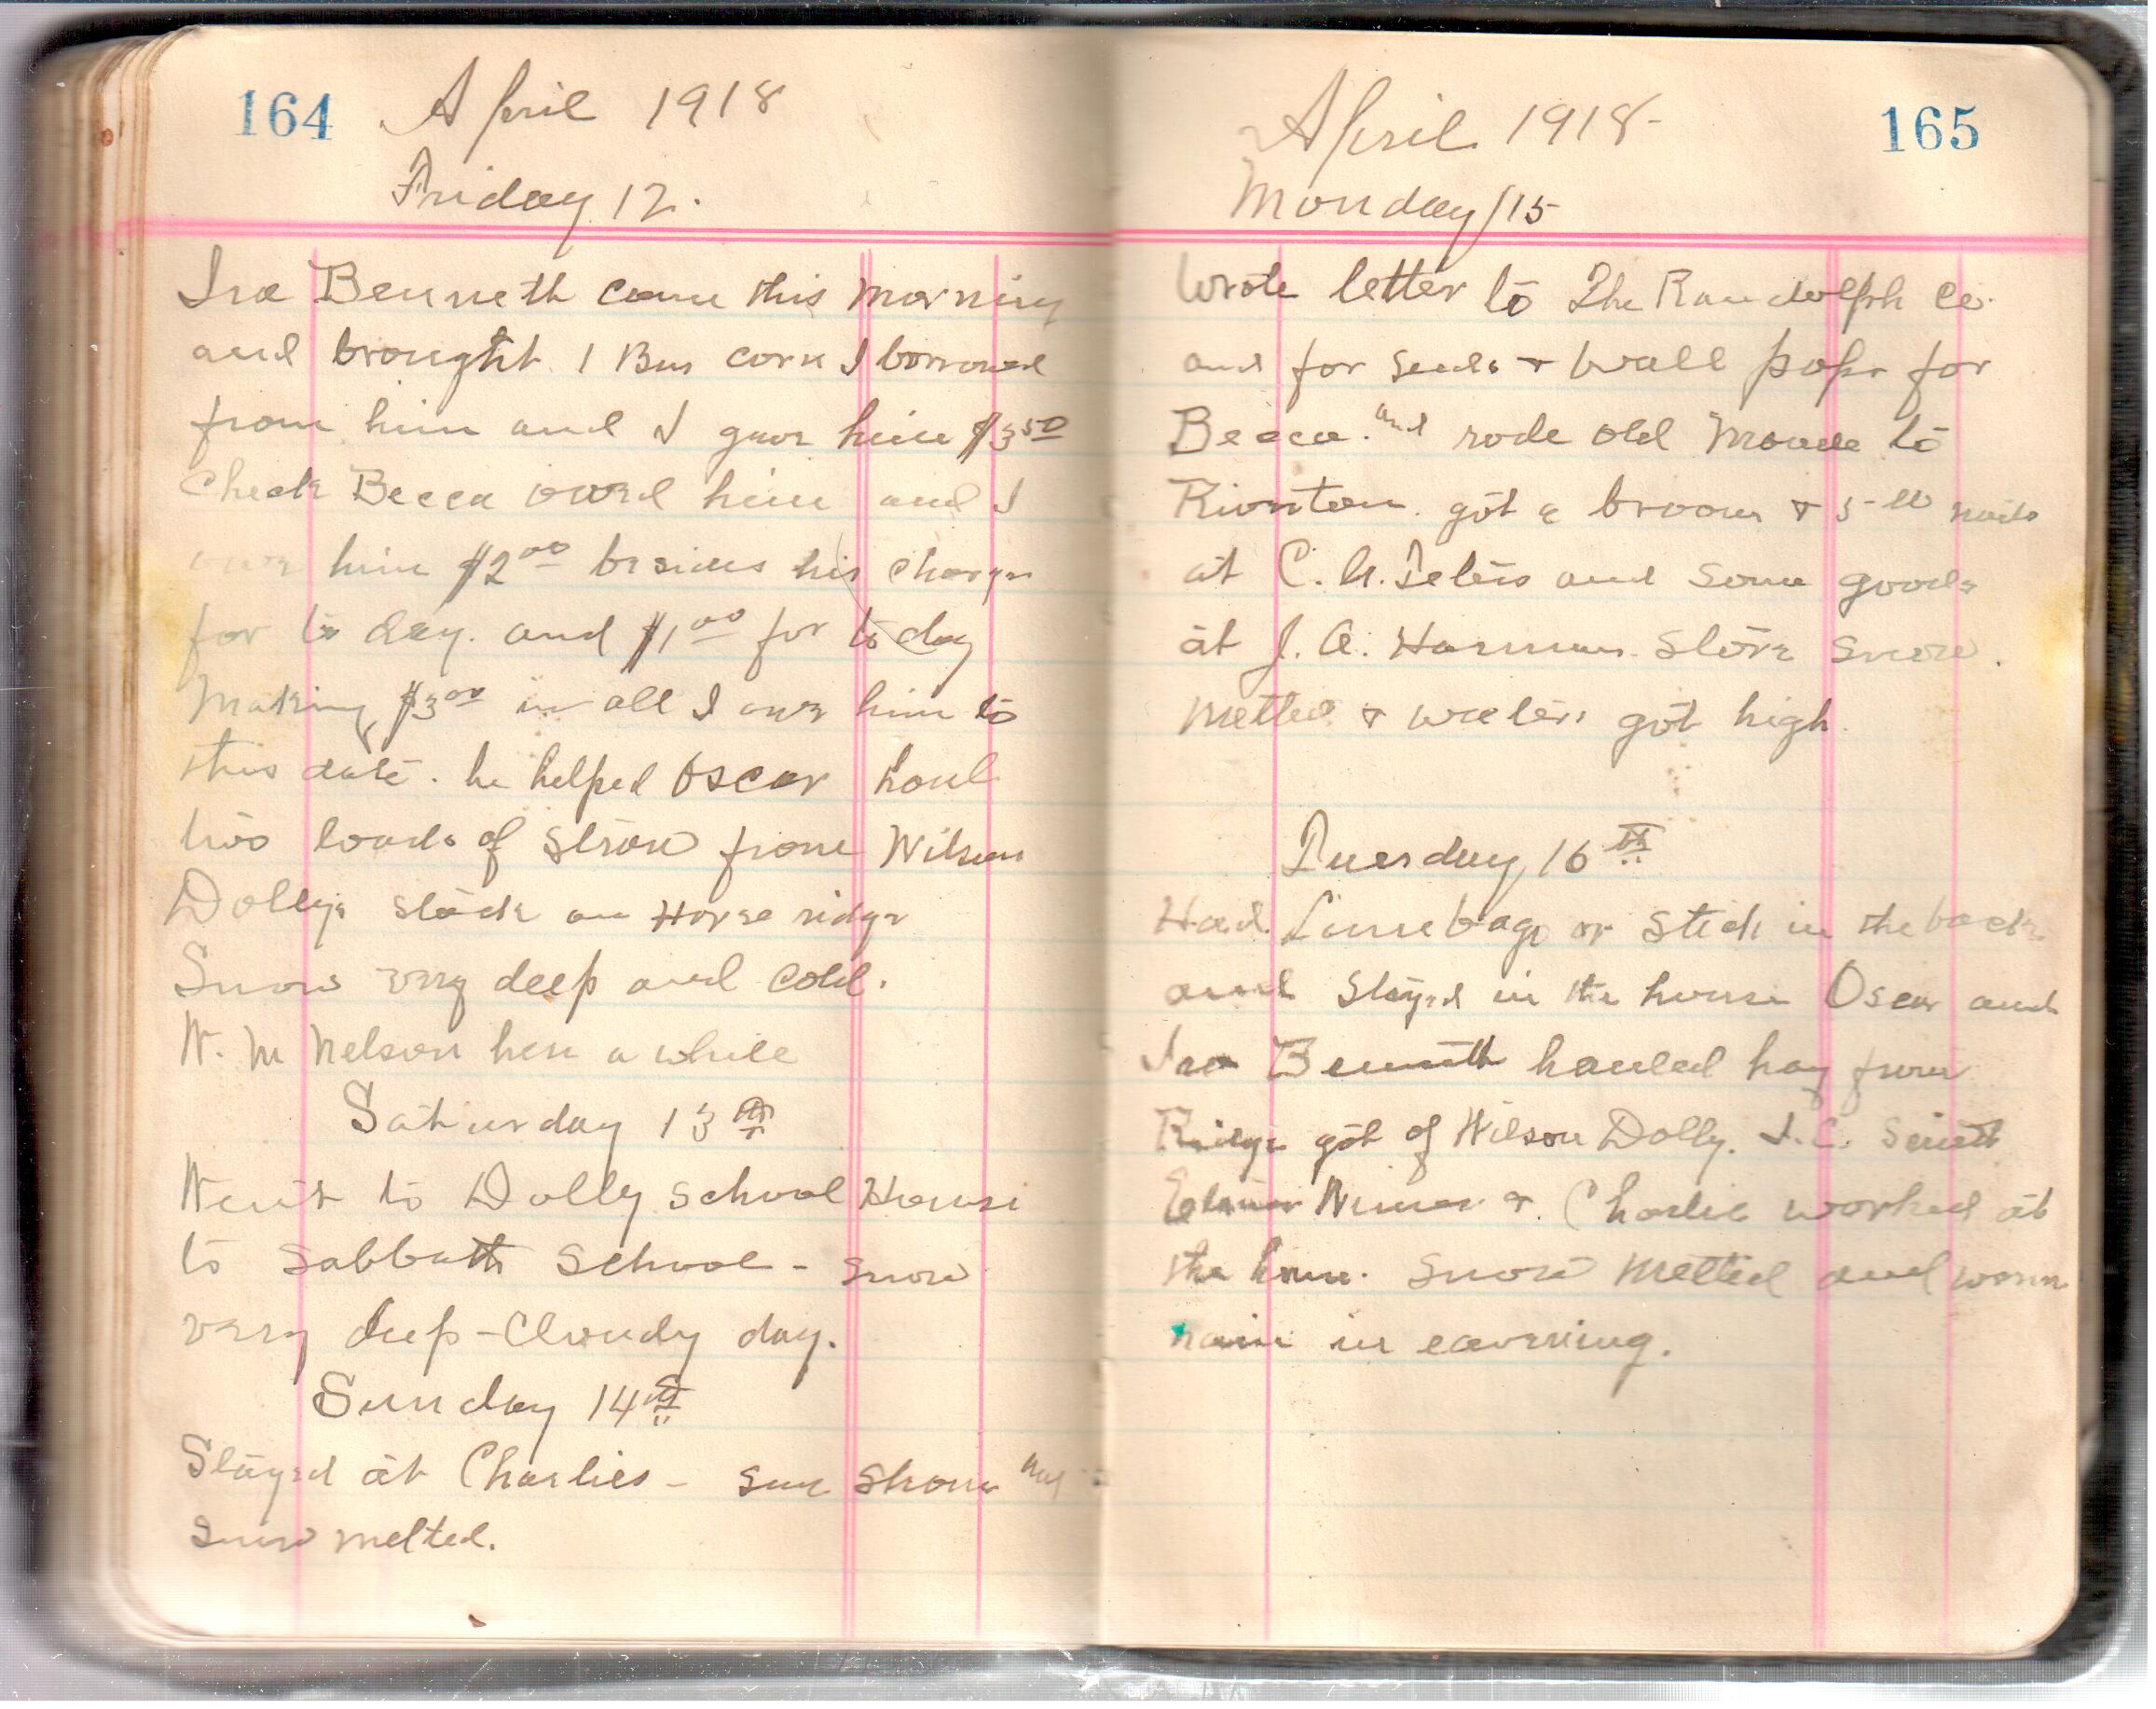 164 April 1918
Friday 12.
Ira Bennett came this morning
and brought 1 Bus corn I borrowed
from him and I gave him $3 50
check Becca owed him and I
owe him $2 00 besides his charge
for to day. and $1 00 for to day
Making $3 00 in all I owe him to
this date. he helped Oscar haul
two loads of straw from Wilson
Dollys stack on Horse ridge
Snow very deep and cold.
W. M Nelson here a while
Saturday 13 th
Went to Dolly School House
to Sabbath School - snow
very deep - Cloudy day.
Sunday 14 th
Stayed at Charlies - sun shone and
snow melted.
April 1918 165
Monday / 15
Wrote letter to The Randolph Co
and for seeds & wall papr for
Becca. and rode old Maude to
Riverton. got a broom & 5 lb nails
at C. A. Teters and some goods
at J. A. Harman store snow.
Melted & waters got high.
Tuesday 16 th
Had Lumebago or stich in the back
and stayed in the house Oscar and
Ira Bennett hauled hay from
Ridge got of Wilson Dolly. I. C. Smith
Elmer & Charlie worked at
the house. snow melted and warm
rain in eavening.